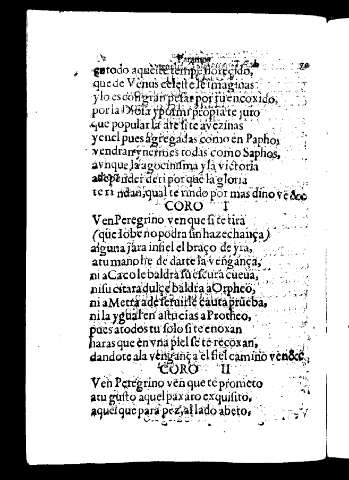 que de Venus celeste te imaginas
y lo es con gran pesar por tu encoxido,
por la Diosa y por mi propia te juro
que popular la
y en el pues agregadas como en Papho,
vendran y nermes todas como Saphos,
aunque la agoc inissima y la victoria
depender de ti por que la gloria
te rindan, qual te rindo por mas dino ve &c
CORO I
Ven Peregrino ven que si te tira
(que Iobe no podra sin hazechança)
alguna jara insiel el braço de yra,
atu mano he de darte la vengança,
ni a Caco le baldra su escura cueua,
ni su citara dulçe baldra a Orpheo,
ni a Metra de seruirle cauta prueba,
ni la ygual en astucias a Protheo,
pues atodos tu solo si te enoxan
haras que en vna piel se te recoxan,
dandote ala vengança el fiel camino ven &c
CORO II
Ven Peregrino ven que te prometo
atu gusto aquel paxaro exquisito,
aquel que para pez, al lado abeto,